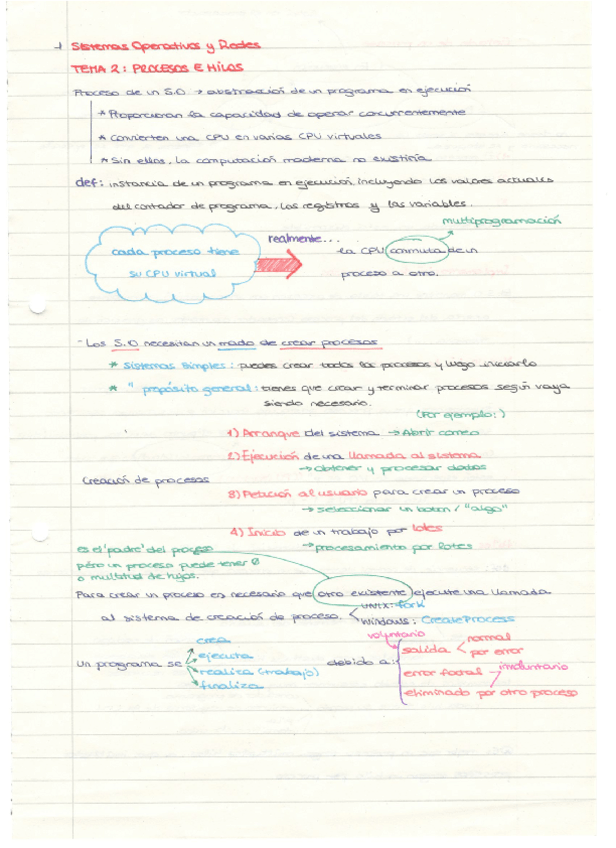 Sistemas Operativos y Redes
TEMA 2: PROCESOS E HILOS
Proceso de un S.O → abstracción de un programa en ejecución
* Proporcionan la capacidad de operar concurrentemente
* Convierten una CPU en varias CPU virtuales
* Sin ellos, la computación moderna no existiría
def: instancia de un programa en ejecución, incluyendo los valores actuales
del contador de programa, los registros y las variables.
multiprogramación
realmente...
cada proceso tiene
su CPU virtual
la CPU conmuta de un
proceso a otro.
- Los S.O necesitan un modo de crear procesos
* Sistemas simples: puedes crear todos los procesos y luego iniciarlo
* " propósito general: tienes que crear y terminar procesos según vaya
siendo necesario.
(Por ejemplo:)
1) Arranque del sistema → Abrir correo
2) Ejecución de una llamada al sistema
→ obtener y procesar datos
Creación de procesos
3) Petición al usuario para crear un proceso
→ seleccionar un botón / "algo"
4) Inicio de un trabajo por lotes
→ procesamiento por lotes
es el 'padre' del proceso
pero un proceso puede tener 0
o multitud de hijos.
Para crear un proceso es necesario que otro existente ejecute una llamada
al sistema de creación de proceso.
UNIX: fork
Windows: CreateProcess
Un programa se
crea
ejecuta
realiza (trabajo)
finaliza
debido a:
voluntario
salida
normal
por error
error fatal
involuntario
eliminado por otro proceso